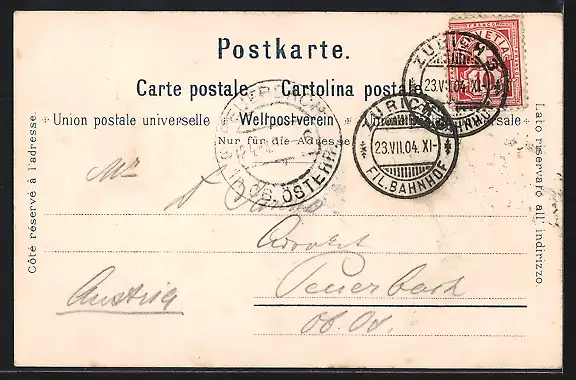 Postkarte.
Carte postale. Cartolina postale.
Union postale universelle Weltpostverein Unione postale universale
Nur für die Adresse
Côté réservé à l'adresse.
Lato riservato all' indirizzo.
FRANCO
HELVETIA
10
ZÜRICH 3
23.VII.04. XI-
FIL. BAHNHOF
ZÜRICH 3
23.VII.04. XI-
FIL. BAHNHOF
OB. ÖSTERR.
Mr
Dr
Advokat
Peuerbach
Austria
Ob. Öst.